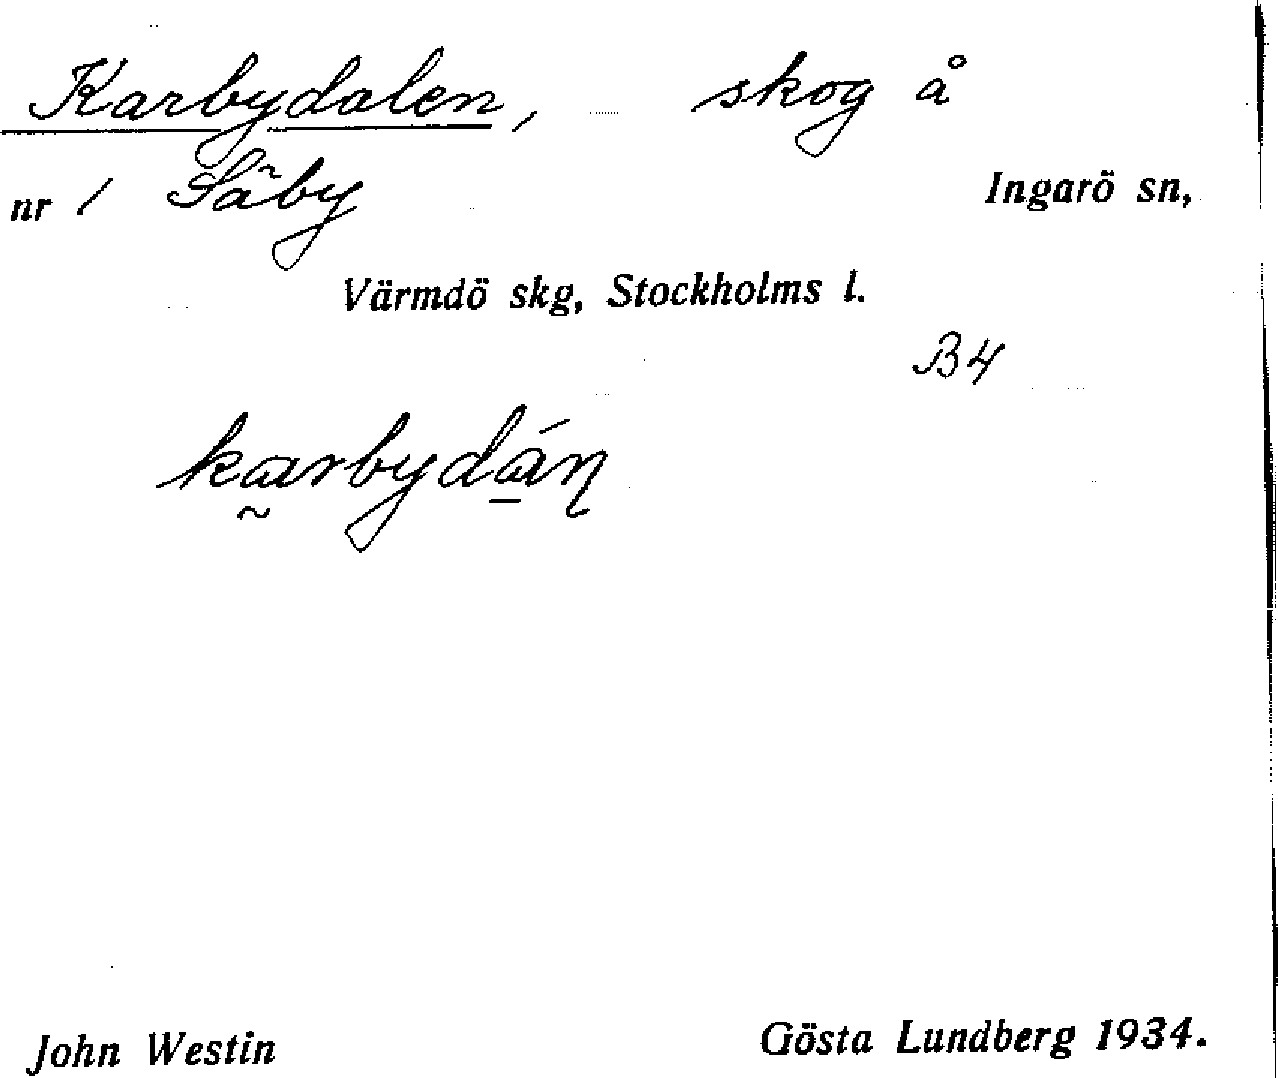 Karbydalen, skog å
nr 1 Säby Ingarö sn,
Värmdö skg, Stockholms l.
B4
karbydán
John Westin Gösta Lundberg 1934.